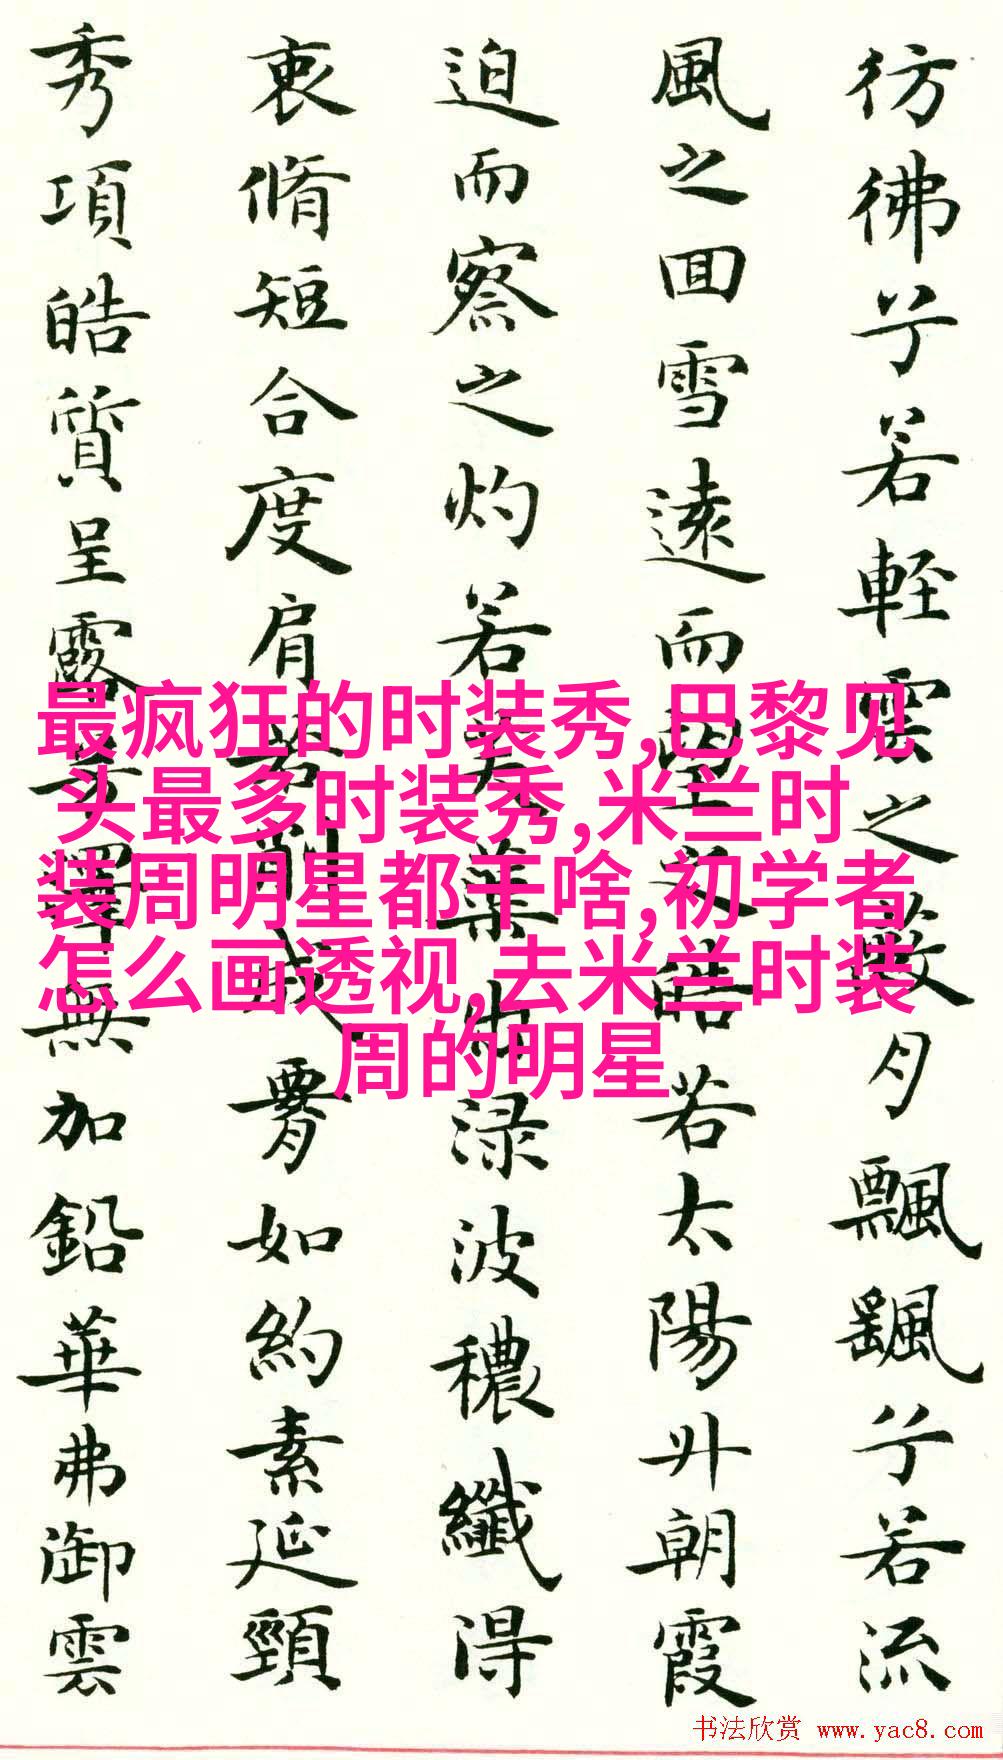 彷彿兮若軽雲之蔽月飄颻兮若流
風之回雪遠而望之若太陽升朝霞
迫而察之灼若芙出渌波穠纖得
衷脩短合度肩若削成腰如約素延頸
秀項皓質呈露芳澤無加鉛華弗御雲
最疯狂的时装秀,巴黎见
头最多时装秀,米兰时
装周明星都干啥,初学者
怎么画透视,去米兰时装
周的明星
书法欣赏 www.yac8.com